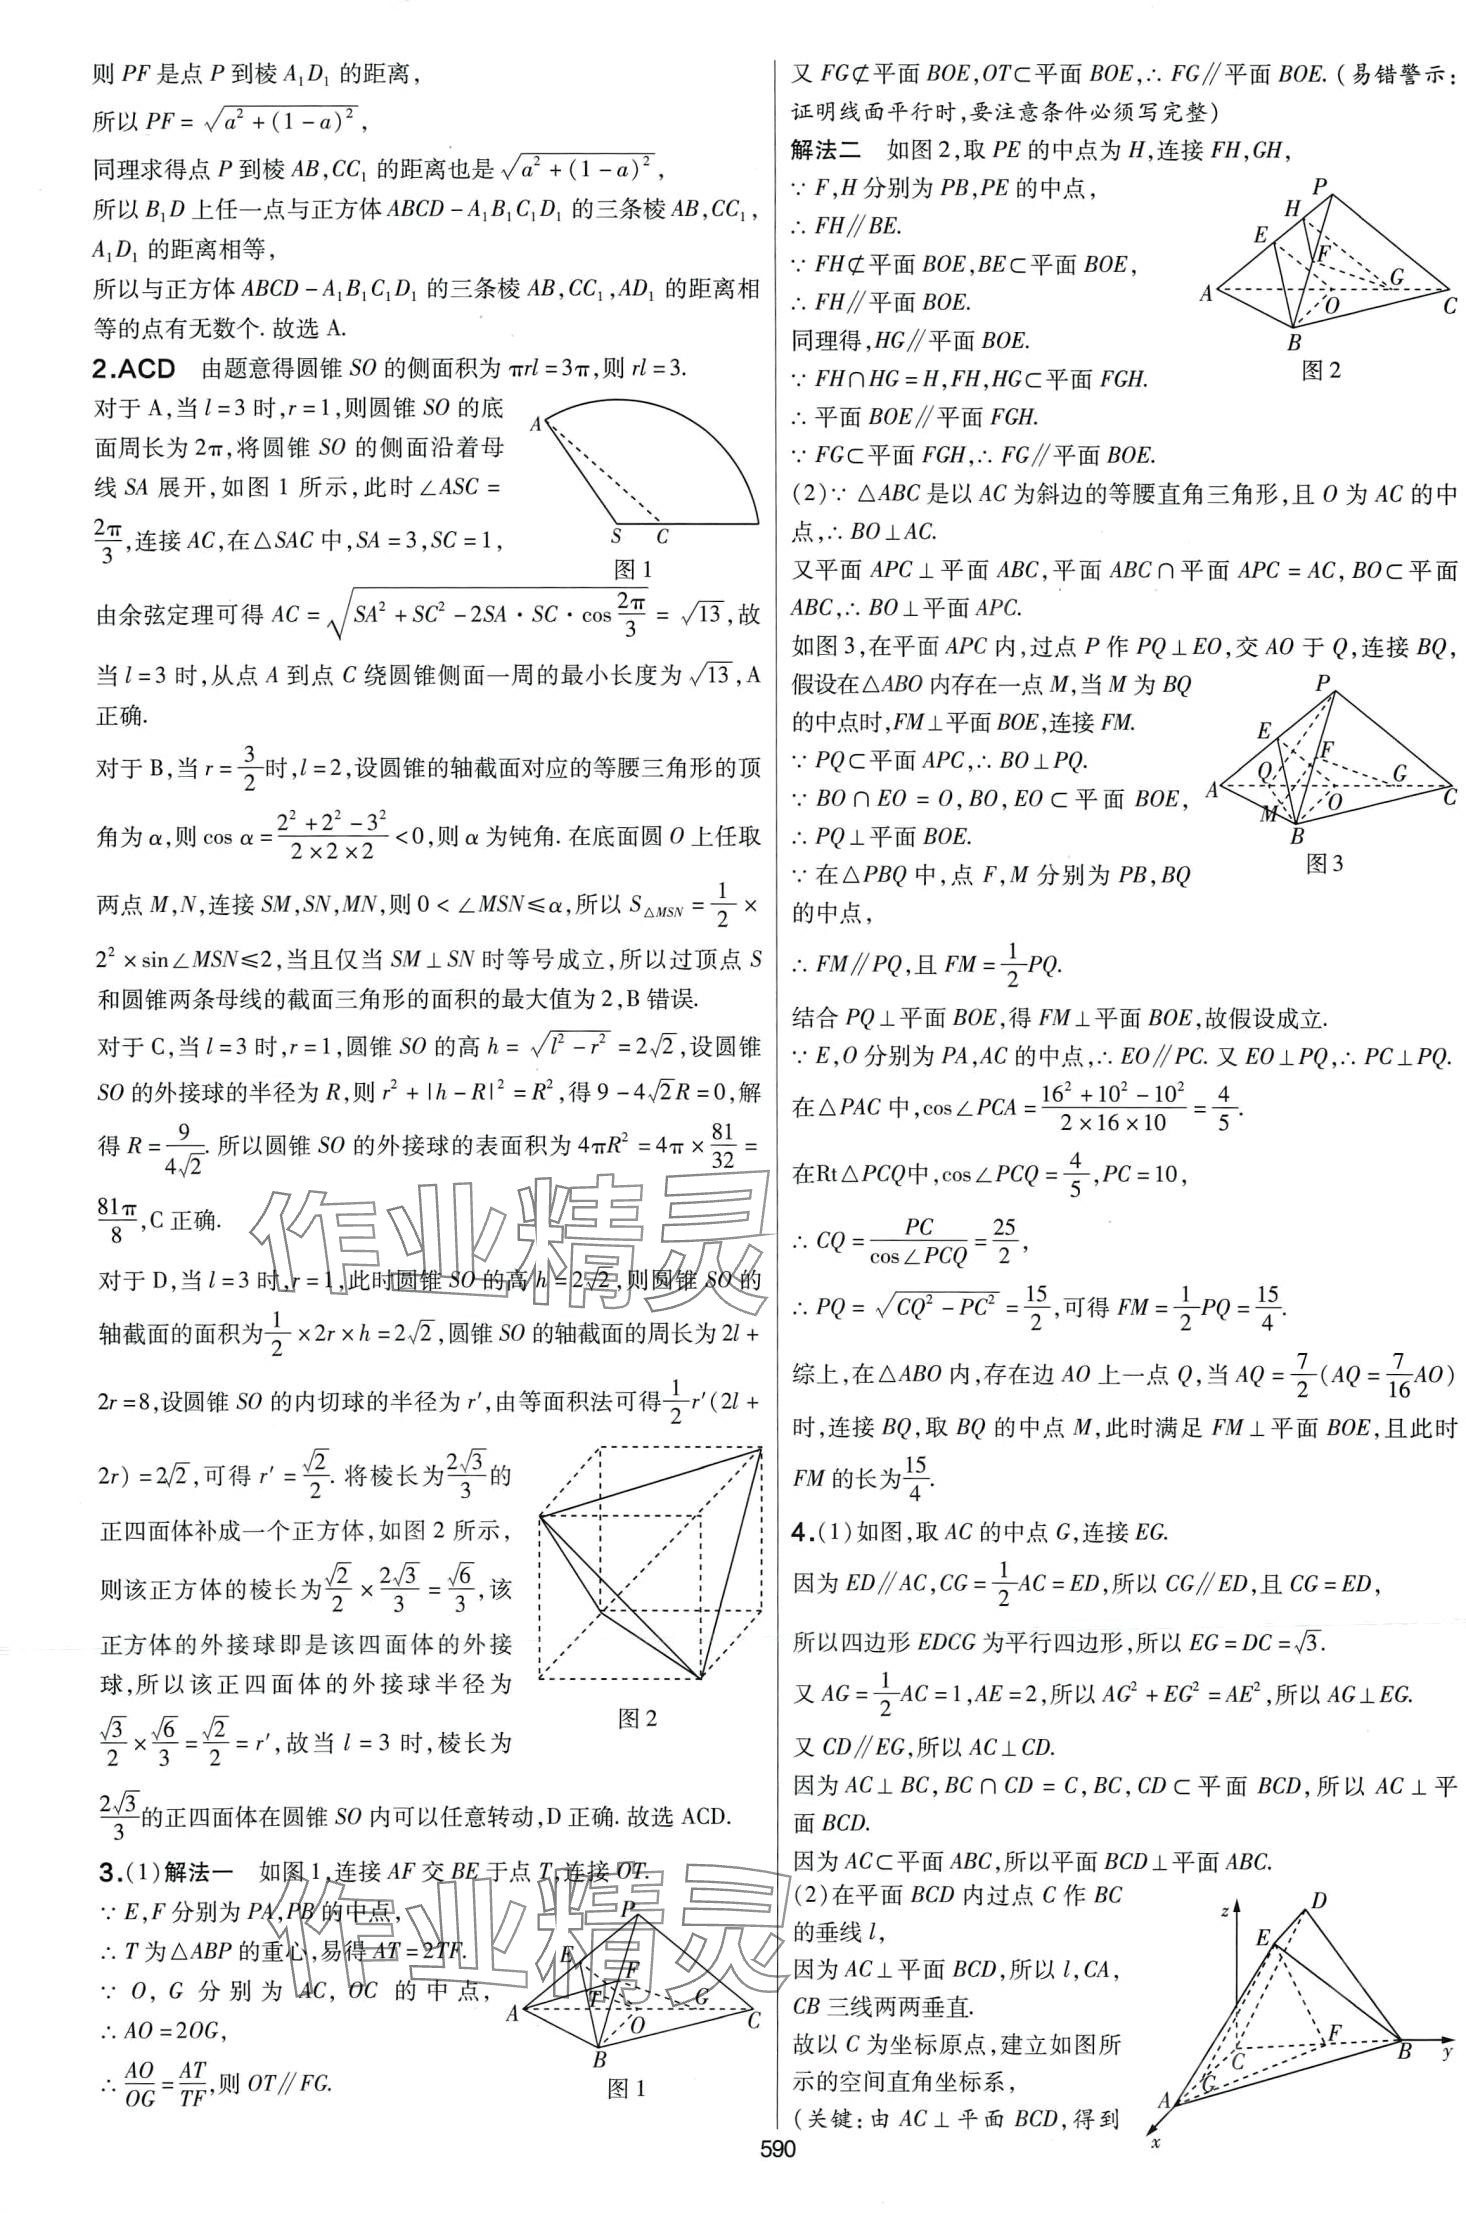 则 PF 是点 P 到棱 A₁D₁ 的距离，
所以 PF = √(a² + (1 - a)²)，
同理求得点 P 到棱 AB，CC₁ 的距离也是 √(a² + (1 - a)²)，
所以 B₁D 上任一点与正方体 ABCD - A₁B₁C₁D₁ 的三条棱 AB，CC₁，
A₁D₁ 的距离相等，
所以与正方体 ABCD - A₁B₁C₁D₁ 的三条棱 AB，CC₁，AD₁ 的距离相
等的点有无数个. 故选 A.
2.ACD 由题意得圆锥 SO 的侧面积为 πrl = 3π，则 rl = 3.
对于 A，当 l = 3 时，r = 1，则圆锥 SO 的底
面周长为 2π，将圆锥 SO 的侧面沿着母
线 SA 展开，如图 1 所示，此时 ∠ASC =
2π/3，连接 AC，在△SAC 中，SA = 3，SC = 1，
A S C
图 1
由余弦定理可得 AC = √(SA² + SC² - 2SA · SC · cos 2π/3) = √13，故
当 l = 3 时，从点 A 到点 C 绕圆锥侧面一周的最小长度为 √13，A
正确.
对于 B，当 r = 3/2 时，l = 2，设圆锥的轴截面对应的等腰三角形的顶
角为 α，则 cos α = (2² + 2² - 3²)/(2×2×2) < 0，则 α 为钝角. 在底面圆 O 上任取
两点 M，N，连接 SM，SN，MN，则 0 < ∠MSN ≤ α，所以 S△MSN = 1/2 ×
2² × sin∠MSN ≤ 2，当且仅当 SM ⊥ SN 时等号成立，所以过顶点 S
和圆锥两条母线的截面三角形的面积的最大值为 2，B 错误.
对于 C，当 l = 3 时，r = 1，圆锥 SO 的高 h = √(l² - r²) = 2√2，设圆锥
SO 的外接球的半径为 R，则 r² + |h - R|² = R²，得 9 - 4√2R = 0，解
得 R = 9/(4√2). 所以圆锥 SO 的外接球的表面积为 4πR² = 4π × 81/32 =
81π/8，C 正确.
对于 D，当 l = 3 时，r = 1，此时圆锥 SO 的高 h = 2√2，则圆锥 SO 的
轴截面的面积为 1/2 × 2r × h = 2√2，圆锥 SO 的轴截面的周长为 2l +
2r = 8，设圆锥 SO 的内切球的半径为 r′，由等面积法可得 1/2 r′(2l +
2r) = 2√2，可得 r′ = √2/2. 将棱长为 2√3/3 的
正四面体补成一个正方体，如图 2 所示，
则该正方体的棱长为 √2/2 × 2√3/3 = √6/3，该
正方体的外接球即是该四面体的外接
球，所以该正四面体的外接球半径为
√3/2 × √6/3 = √2/2 = r′，故当 l = 3 时，棱长为
图 2
2√3/3 的正四面体在圆锥 SO 内可以任意转动，D 正确. 故选 ACD.
3.(1)解法一 如图 1，连接 AF 交 BE 于点 T，连接 OT.
∵ E，F 分别为 PA，PB 的中点，
∴ T 为△ABP 的重心，易得 AT = 2TF.
∵ O，G 分别为 AC，OC 的中点，
∴ AO = 2OG，
∴ AO/OG = AT/TF，则 OT∥FG.
P E F T G A O C B
图 1
又 FG⊄平面 BOE，OT⊂平面 BOE，∴ FG∥平面 BOE.（易错警示：
证明线面平行时，要注意条件必须写完整）
解法二 如图 2，取 PE 的中点为 H，连接 FH，GH，
∵ F，H 分别为 PB，PE 的中点，
∴ FH∥BE.
∵ FH⊄平面 BOE，BE⊂平面 BOE，
∴ FH∥平面 BOE.
同理得，HG∥平面 BOE.
∵ FH∩HG = H，FH，HG⊂平面 FGH.
∴ 平面 BOE∥平面 FGH.
∵ FG⊂平面 FGH，∴ FG∥平面 BOE.
P H E F G A O C B
图 2
(2)∵ △ABC 是以 AC 为斜边的等腰直角三角形，且 O 为 AC 的中
点，∴ BO⊥AC.
又平面 APC⊥平面 ABC，平面 ABC∩平面 APC = AC，BO⊂平面
ABC，∴ BO⊥平面 APC.
如图 3，在平面 APC 内，过点 P 作 PQ⊥EO，交 AO 于 Q，连接 BQ，
假设在△ABO 内存在一点 M，当 M 为 BQ
的中点时，FM⊥平面 BOE，连接 FM.
∵ PQ⊂平面 APC，∴ BO⊥PQ.
∵ BO∩EO = O，BO，EO⊂平面 BOE，
∴ PQ⊥平面 BOE.
∵ 在△PBQ 中，点 F，M 分别为 PB，BQ
的中点，
P E F Q G A M O C B
图 3
∴ FM∥PQ，且 FM = 1/2 PQ.
结合 PQ⊥平面 BOE，得 FM⊥平面 BOE，故假设成立.
∵ E，O 分别为 PA，AC 的中点，∴ EO∥PC. 又 EO⊥PQ，∴ PC⊥PQ.
在△PAC 中，cos∠PCA = (16² + 10² - 10²)/(2×16×10) = 4/5.
在Rt△PCQ中，cos∠PCQ = 4/5，PC = 10，
∴ CQ = PC/cos∠PCQ = 25/2，
∴ PQ = √(CQ² - PC²) = 15/2，可得 FM = 1/2 PQ = 15/4.
综上，在△ABO 内，存在边 AO 上一点 Q，当 AQ = 7/2 (AQ = 7/16 AO)
时，连接 BQ，取 BQ 的中点 M，此时满足 FM⊥平面 BOE，且此时
FM 的长为 15/4.
4.(1)如图，取 AC 的中点 G，连接 EG.
因为 ED∥AC，CG = 1/2 AC = ED，所以 CG∥ED，且 CG = ED，
所以四边形 EDCG 为平行四边形，所以 EG = DC = √3.
又 AG = 1/2 AC = 1，AE = 2，所以 AG² + EG² = AE²，所以 AG⊥EG.
又 CD∥EG，所以 AC⊥CD.
因为 AC⊥BC，BC∩CD = C，BC，CD⊂平面 BCD，所以 AC⊥平
面 BCD.
因为 AC⊂平面 ABC，所以平面 BCD⊥平面 ABC.
(2)在平面 BCD 内过点 C 作 BC
的垂线 l，
因为 AC⊥平面 BCD，所以 l，CA，
CB 三线两两垂直.
故以 C 为坐标原点，建立如图所
示的空间直角坐标系，
（关键：由 AC⊥平面 BCD，得到
z D E F C B y G A x
590
作业精灵
作业精灵